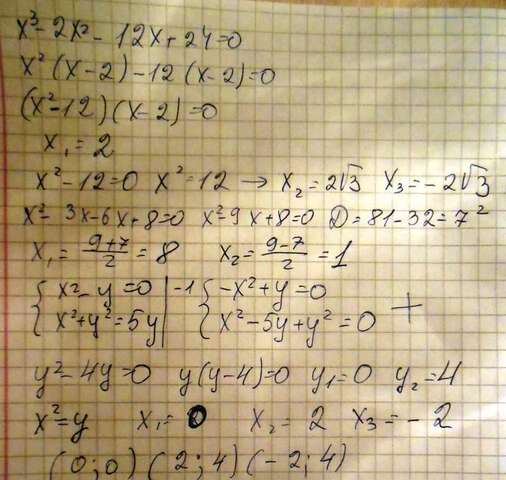 x³ - 2x² - 12x + 24 = 0
x²(x-2) - 12(x-2) = 0
(x²-12)(x-2) = 0
x₁ = 2
x²-12=0 x²=12 → x₂ = 2√3 x₃ = -2√3
x² - 3x - 6x + 8 = 0 x² - 9x + 8 = 0 D = 81 - 32 = 7²
x₁ = (9+7)/2 = 8 x₂ = (9-7)/2 = 1
{ x² - y = 0 | -1 { -x² + y = 0
{ x² + y² = 5y | { x² - 5y + y² = 0 +
y² - 4y = 0 y(y-4) = 0 y1 = 0 y₂ = 4
x² = y x₁ = 0 x₂ = 2 x₃ = -2
(0;0) (2;4) (-2;4)